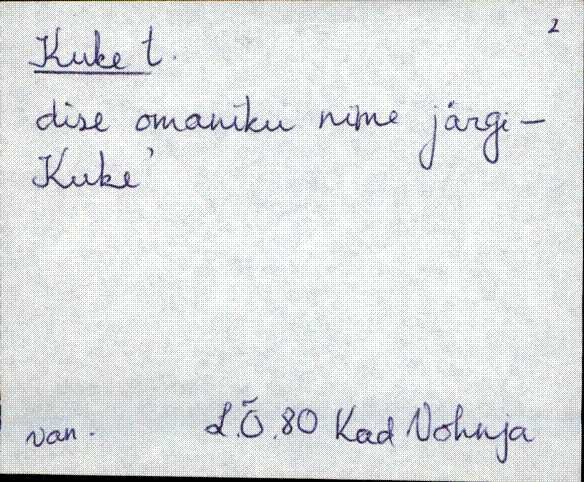 2
Kuke t.
dise omaniku nime järgi –
Kuke'
van. L.Õ.80 Kad Vohnja